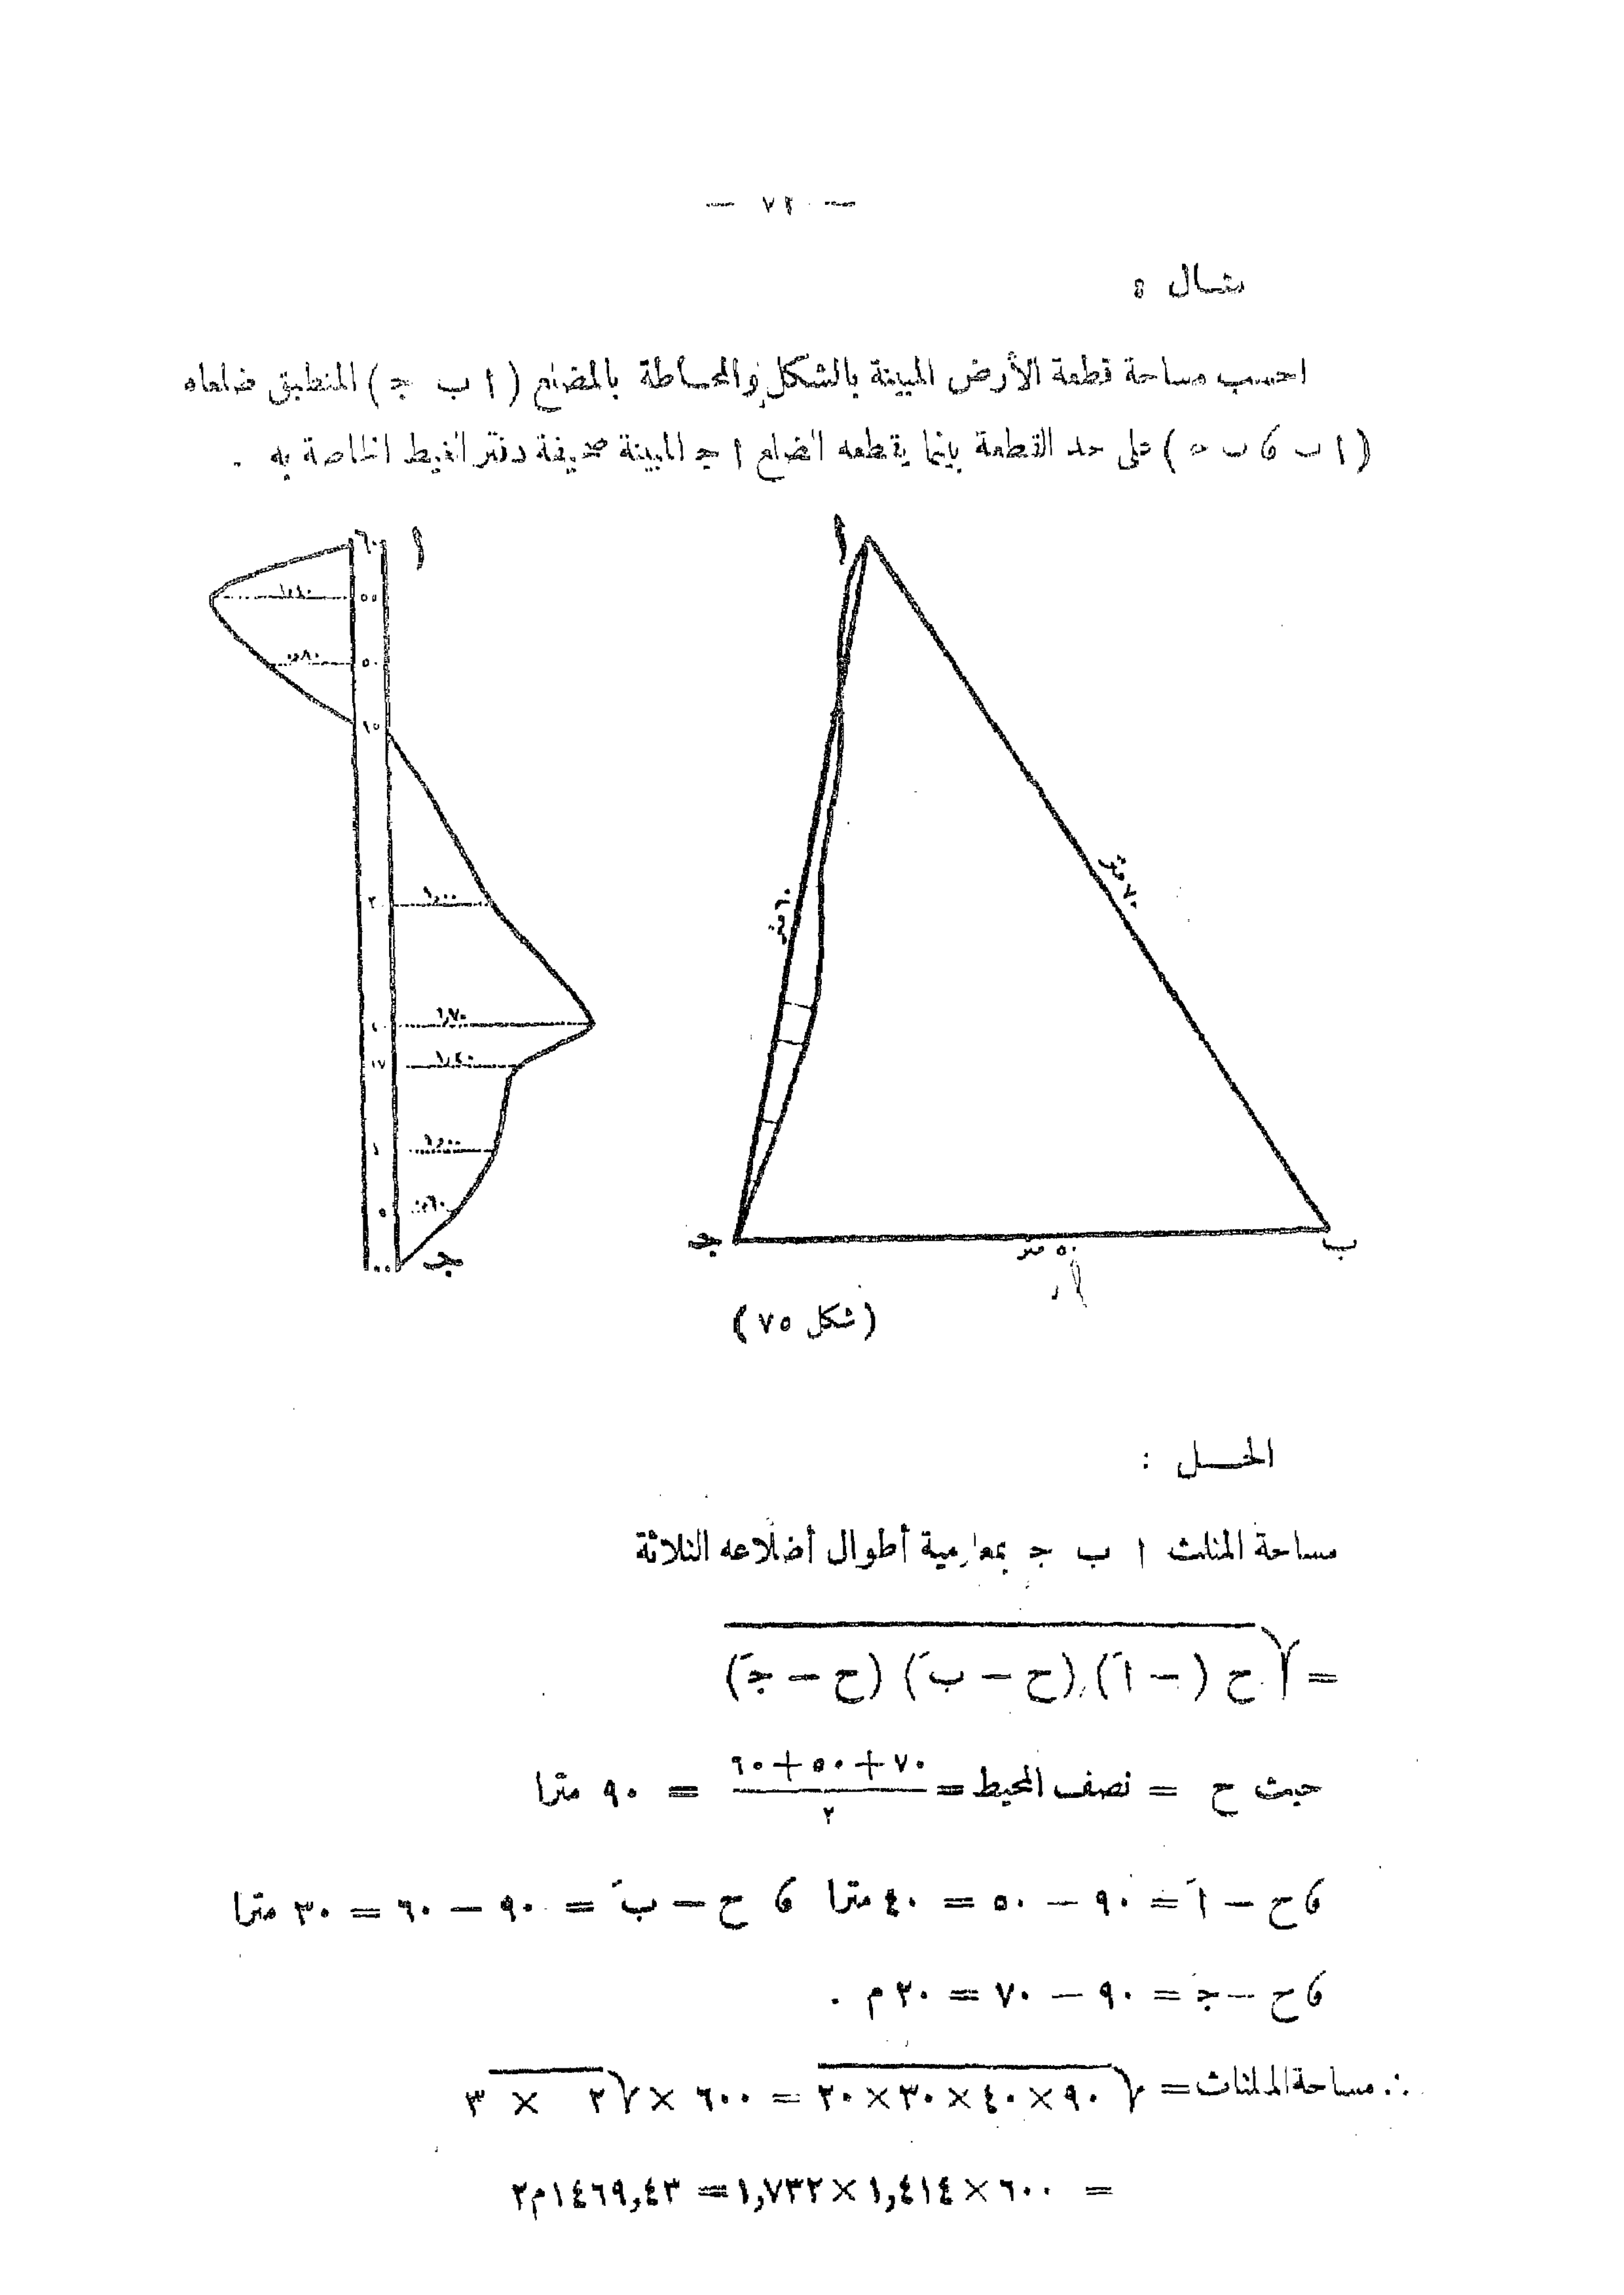 — ٧٢ —
مثال ٥
احسب مساحة قطعة الأرض المبينة بالشكل والمحاطة بالمضلع ( ا ب ج ) المنطبق ضلعاه
( ا ب ، ب ج ) على حد القطعة بينما يقطعه الضلع ا ج المبينة صحيفة دفتر الغيط الخاصة به .
أ
٦٠
٥٥
٠,٨٠
٥٠
١,٠٠
١,٧٠
١,٤٠
١٧
١,٠٠
٥
٠,٦٠
ج
أ
٧٠ متر
٦٠ متر
ج
ب
٥٠ متر
(شكل ٧٥)
الحـــل :
مساحة المثلث ا ب ج بمعلومية أطوال أضلاعه الثلاثة
= √ ح ( – اَ) (ح – بَ) (ح – جَ)
حيث ح = نصف المحيط = (٧٠ + ٥٠ + ٦٠) / ٢ = ٩٠ مترا
، ح – اَ = ٩٠ – ٥٠ = ٤٠ مترا ، ح – بَ = ٩٠ – ٦٠ = ٣٠ مترا
، ح – جَ = ٩٠ – ٧٠ = ٢٠ م .
∴ مساحة المثلث = √ ٩٠ × ٤٠ × ٣٠ × ٢٠ = ٦٠٠ × √ ٢ × ٣
= ٦٠٠ × ١,٤١٤ × ١,٧٣٢ = ١٤٦٩,٤٣ م٢